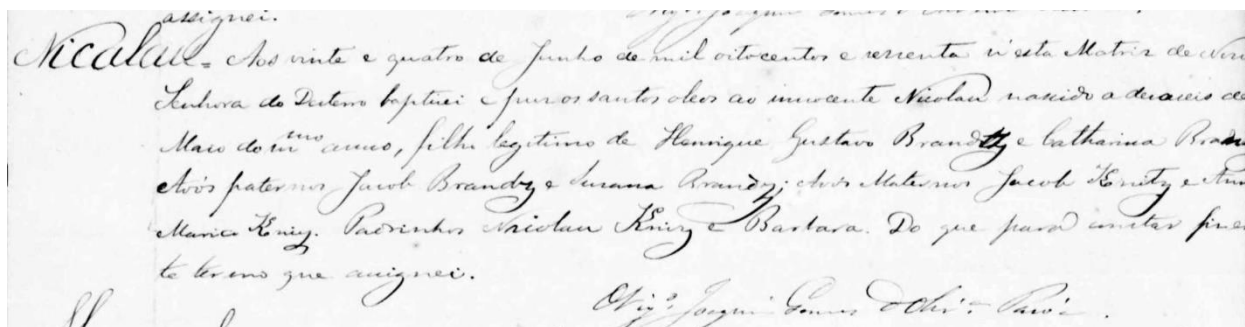 assignei.
Nicolau = Aos vinte e quatro de Junho de mil oitocentos e sessenta n'esta Matriz de Nossa
Senhora do Desterro baptizei e puz os santos oleos ao innocente Nicolau nascido a dezaseis de
Maio do mmo anno, filho legitimo de Henrique Gustavo Brandtz e Catharina Brand
Avós paternos Jacob Brandz e Suzana Brandz; Avós Maternos Jacob Knitz e Ann
Maria Kniz. Padrinhos Nicolau Kniz e Barbara. Do que para constar fiz es
te termo que assignei.
O Vigo. Joaquim Gomes d'Olivra